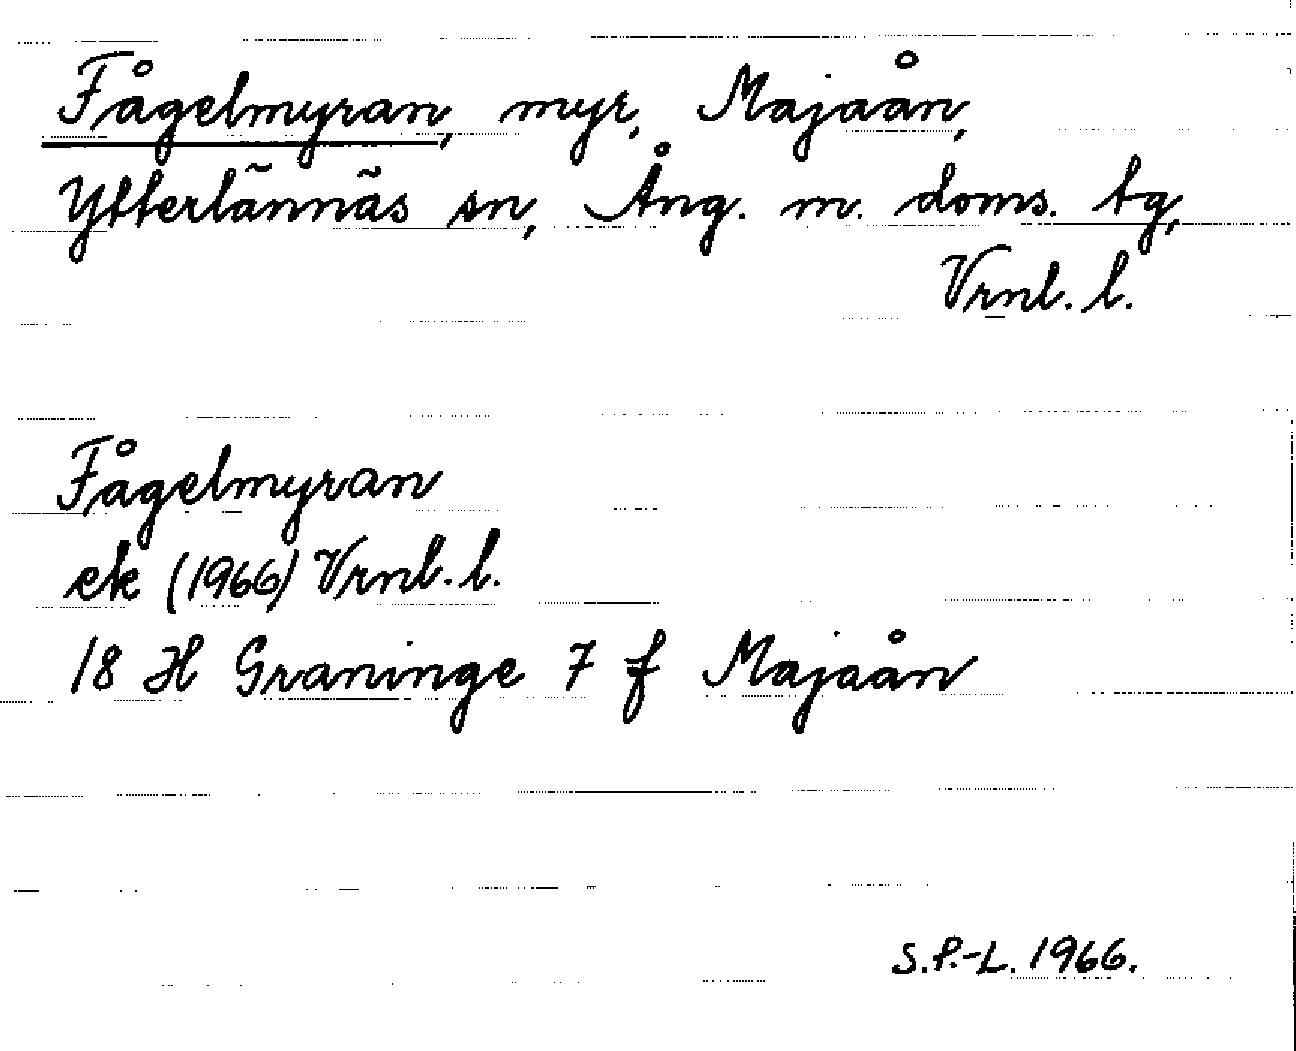 Fågelmyran, myr, Majaån,
Ytterlännäs sn, Ång. m. doms. tg,
Vrnl. l.
Fågelmyran
ek (1966) Vrnl. l.
18 H Graninge 7 f Majaån
S.P.-L. 1966.